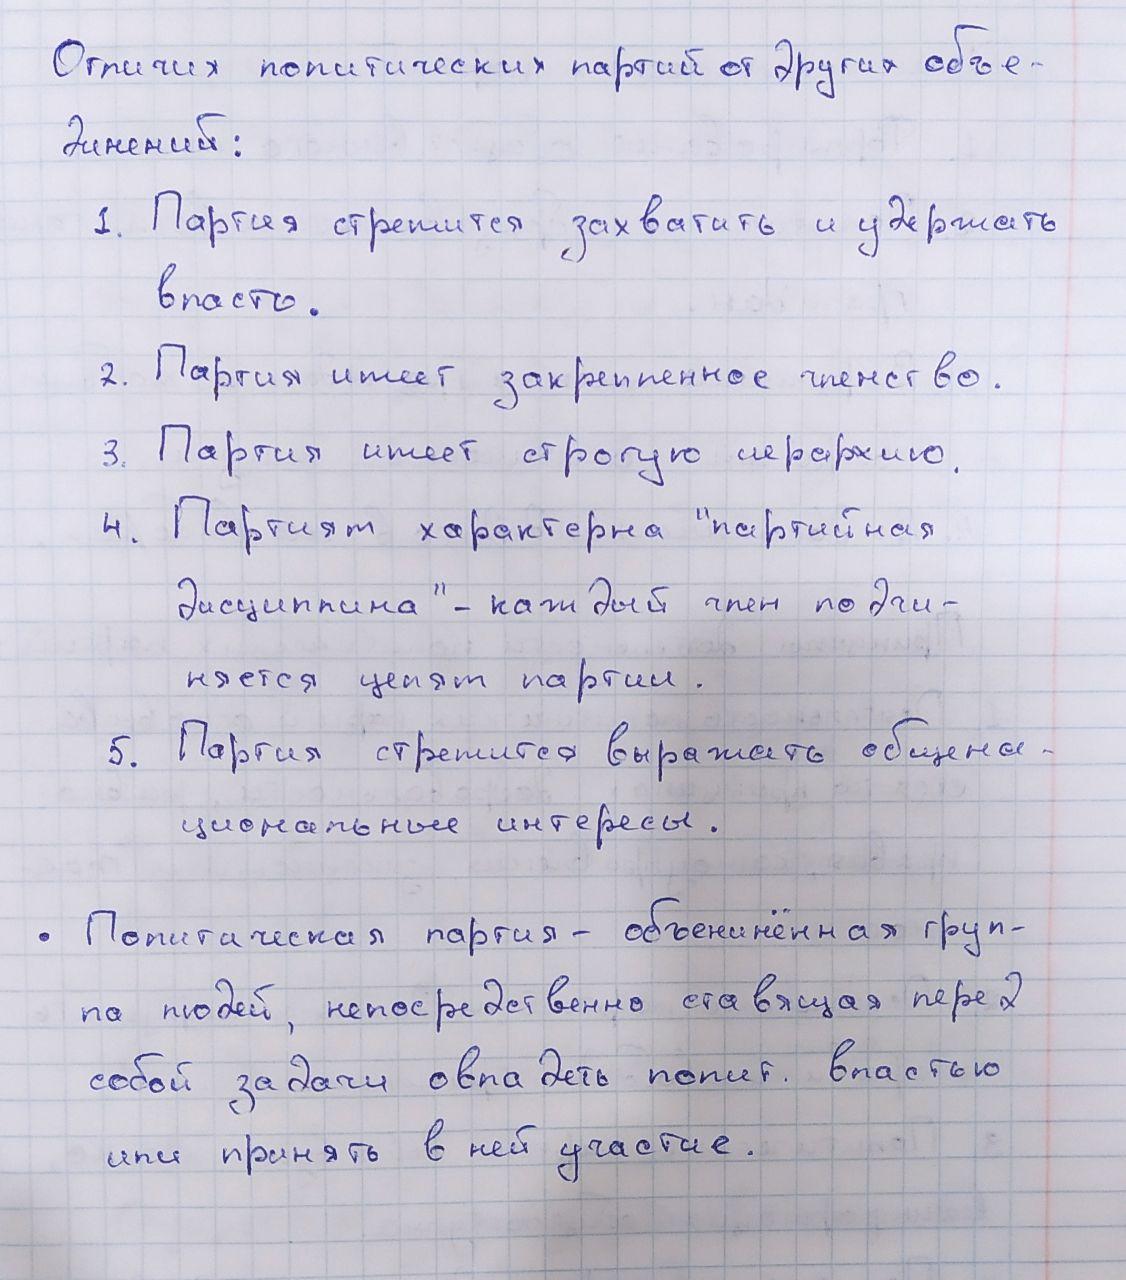 Отличия политических партий от других объе-
динений:
1. Партия стремится захватить и удержать
власть.
2. Партия имеет закрепленное членство.
3. Партия имеет строгую иерархию.
4. Партиям характерна "партийная
дисциплина" - каждый член подчи-
няется целям партии.
5. Партия стремится выражать общена-
циональные интересы.
• Политическая партия - объенинённая груп-
па людей, непосредственно ставящая перед
собой задачи овладеть полит. властью
или принять в ней участие.